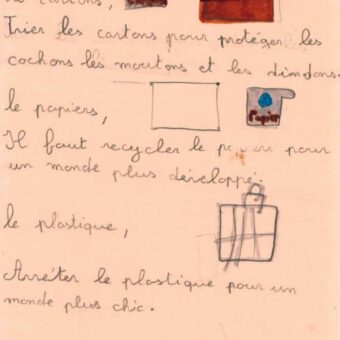 cartons,
Trier les cartons pour protéger les
cochons les moutons et les dindons.
le papiers,
Papier
Il faut recycler le papiers pour
un monde plus développé.
le plastique,
Arréter le plastique pour un
monde plus chic.